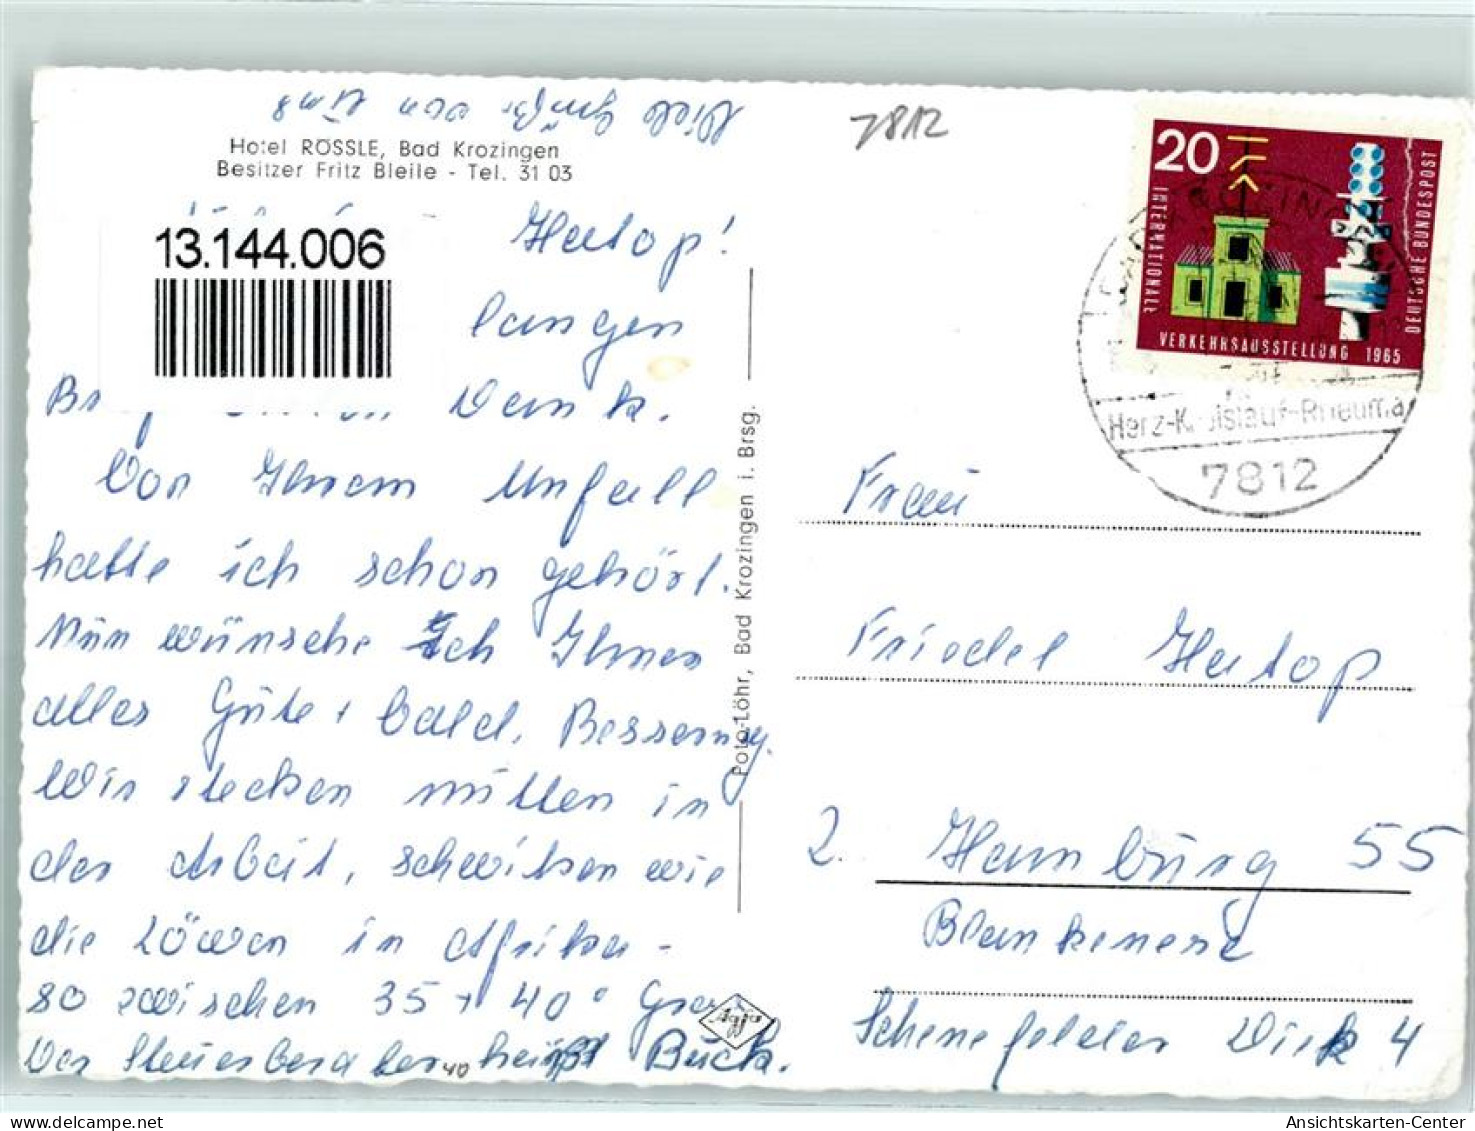 Viele Grüße von Uns
Hotel RÖSSLE, Bad Krozingen
Besitzer Fritz Bleile - Tel. 31 03
13.144.006
Hatop!
langen
Dank.
Von Ihrem Unfall
hatte ich schon gehört.
Nun wünsche Ich Ihnen
alles Gute + bald. Besserung.
Wir stecken mitten in
der Arbeit, schwitzen wie
die Löwen in Afrika -
so zwischen 35 + 40°
Der Steuerberater heißt Buck.
40
Foto-Löhr, Bad Krozingen i. Brsg.
Agfa
7812
20
INTERNATIONALE
VERKEHRSAUSSTELLUNG 1965
DEUTSCHE BUNDESPOST
Herz-Kreislauf-Rheuma
7812
Frau
Friedel Hatop
2. Hamburg 55
Blankenese
Schenefelder Diek 4
Ansichtskarten-Center